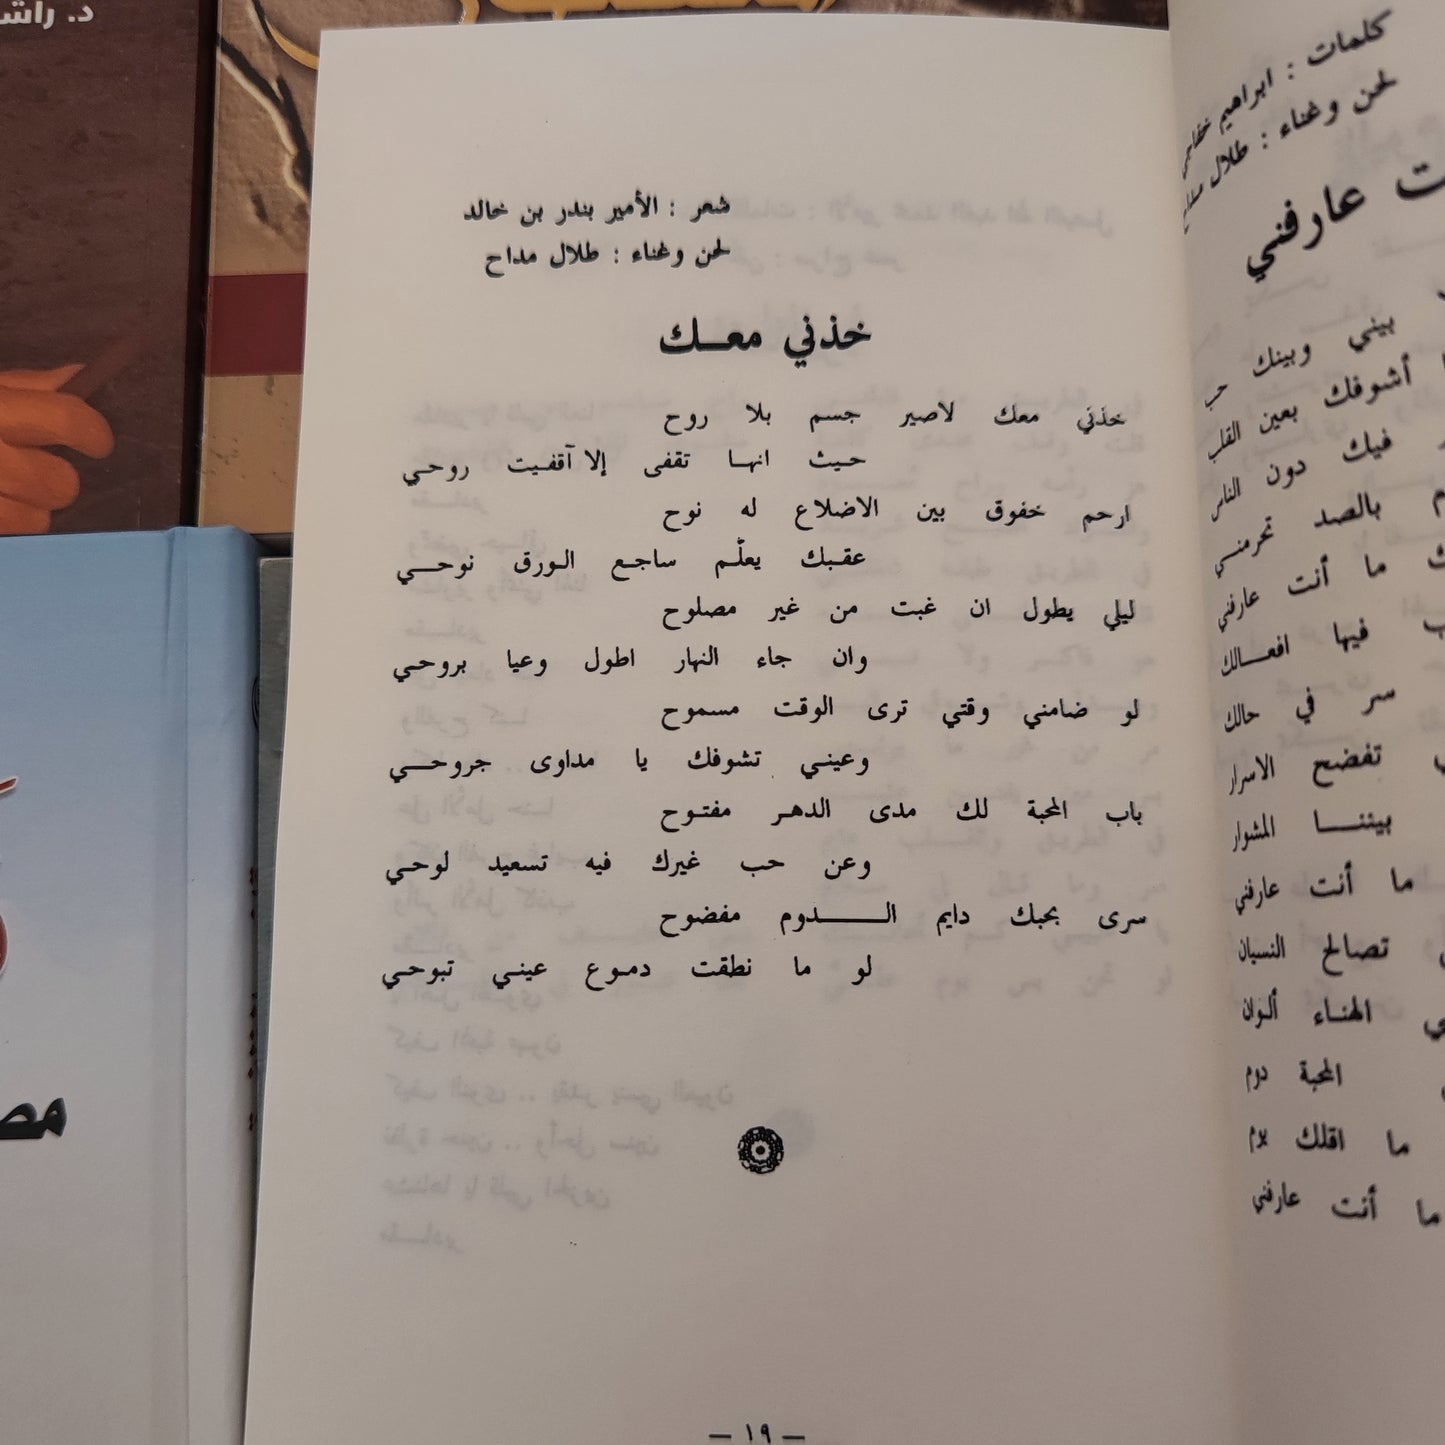 شعر : الأمير بندر بن خالد
لحن وغناء : طلال مداح
خذني معـــك
خذني معك لاصير جسم بلا روح
حيث انها تقفى إلا آقفيت روحي
ارحم خفوق بين الاضلاع له نوح
عقبك يعلّم ساجع الورق نوحــي
ليلي يطول ان غبت من غير مصلوح
وان جاء النهار اطول وعيا بروحي
لو ضامني وقتي ترى الوقت مسموح
وعيني تشوفك يا مداوى جروحــي
باب المحبة لك مدى الدهر مفتوح
وعن حب غيرك فيه تسعيد لوحي
سرى بحبك دايم الـــــدوم مفضوح
لو ما نطقت دموع عيني تبوحي
— ١٩ —
كلمات : ابراهيم خفاجي
لحن وغناء : طلال
عارفني
بيني وبينك حب
أشوفك بعين القلب
فيك دون الناس
بالصد تحرمنــي
ما أنت عارفني
فيها افعــالك
سر في حالك
تفضح الاسرار
بيننــا المشوار
ما أنت عارفني
تصالح النسيان
الهنـاء ألوان
المحبة دوم
ما اقلك يوم
ما أنت عارفني
د. راشد